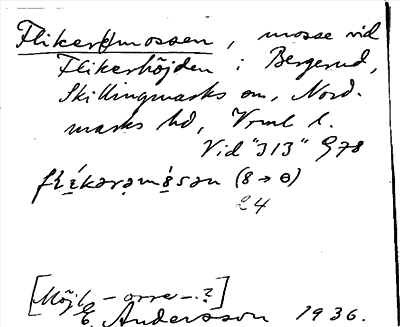 Flikerömossen, mosse vid
Flikerhöjden i Bergerud,
Skillingmarks sn, Nord-
marks hd, Vrml l.
Vid "313" G78
(8 → ɵ)
24
[Möjl. -orre-?]
E. Andersson 1936.